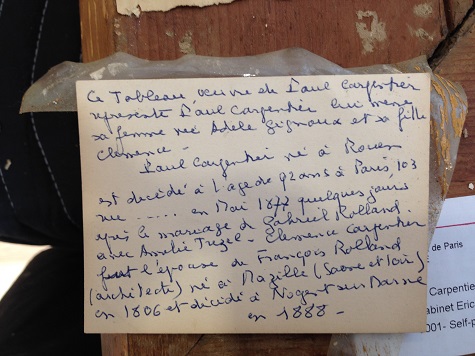 Ce Tableau œuvre de Paul Carpentier
represente Paul Carpentier lui meme
sa femme née Adele Gignoux et sa fille
Clemence -
Paul Carpentier né à Rouen
est decidé à l'age de 92 ans à Paris, 103
rue ...... en Mai 1877 quelques jours
après le mariage de Gabriel Rolland
avec Amélie Trezel - Clemence Carpentier
fut l'épouse de François Rolland
(architecte) né à Mazille (Saone et Loire)
en 1806 et décidé à Nogent sur Marne
en 1888 -
de Paris
Carpentie
abinet Eric
001- Self-p